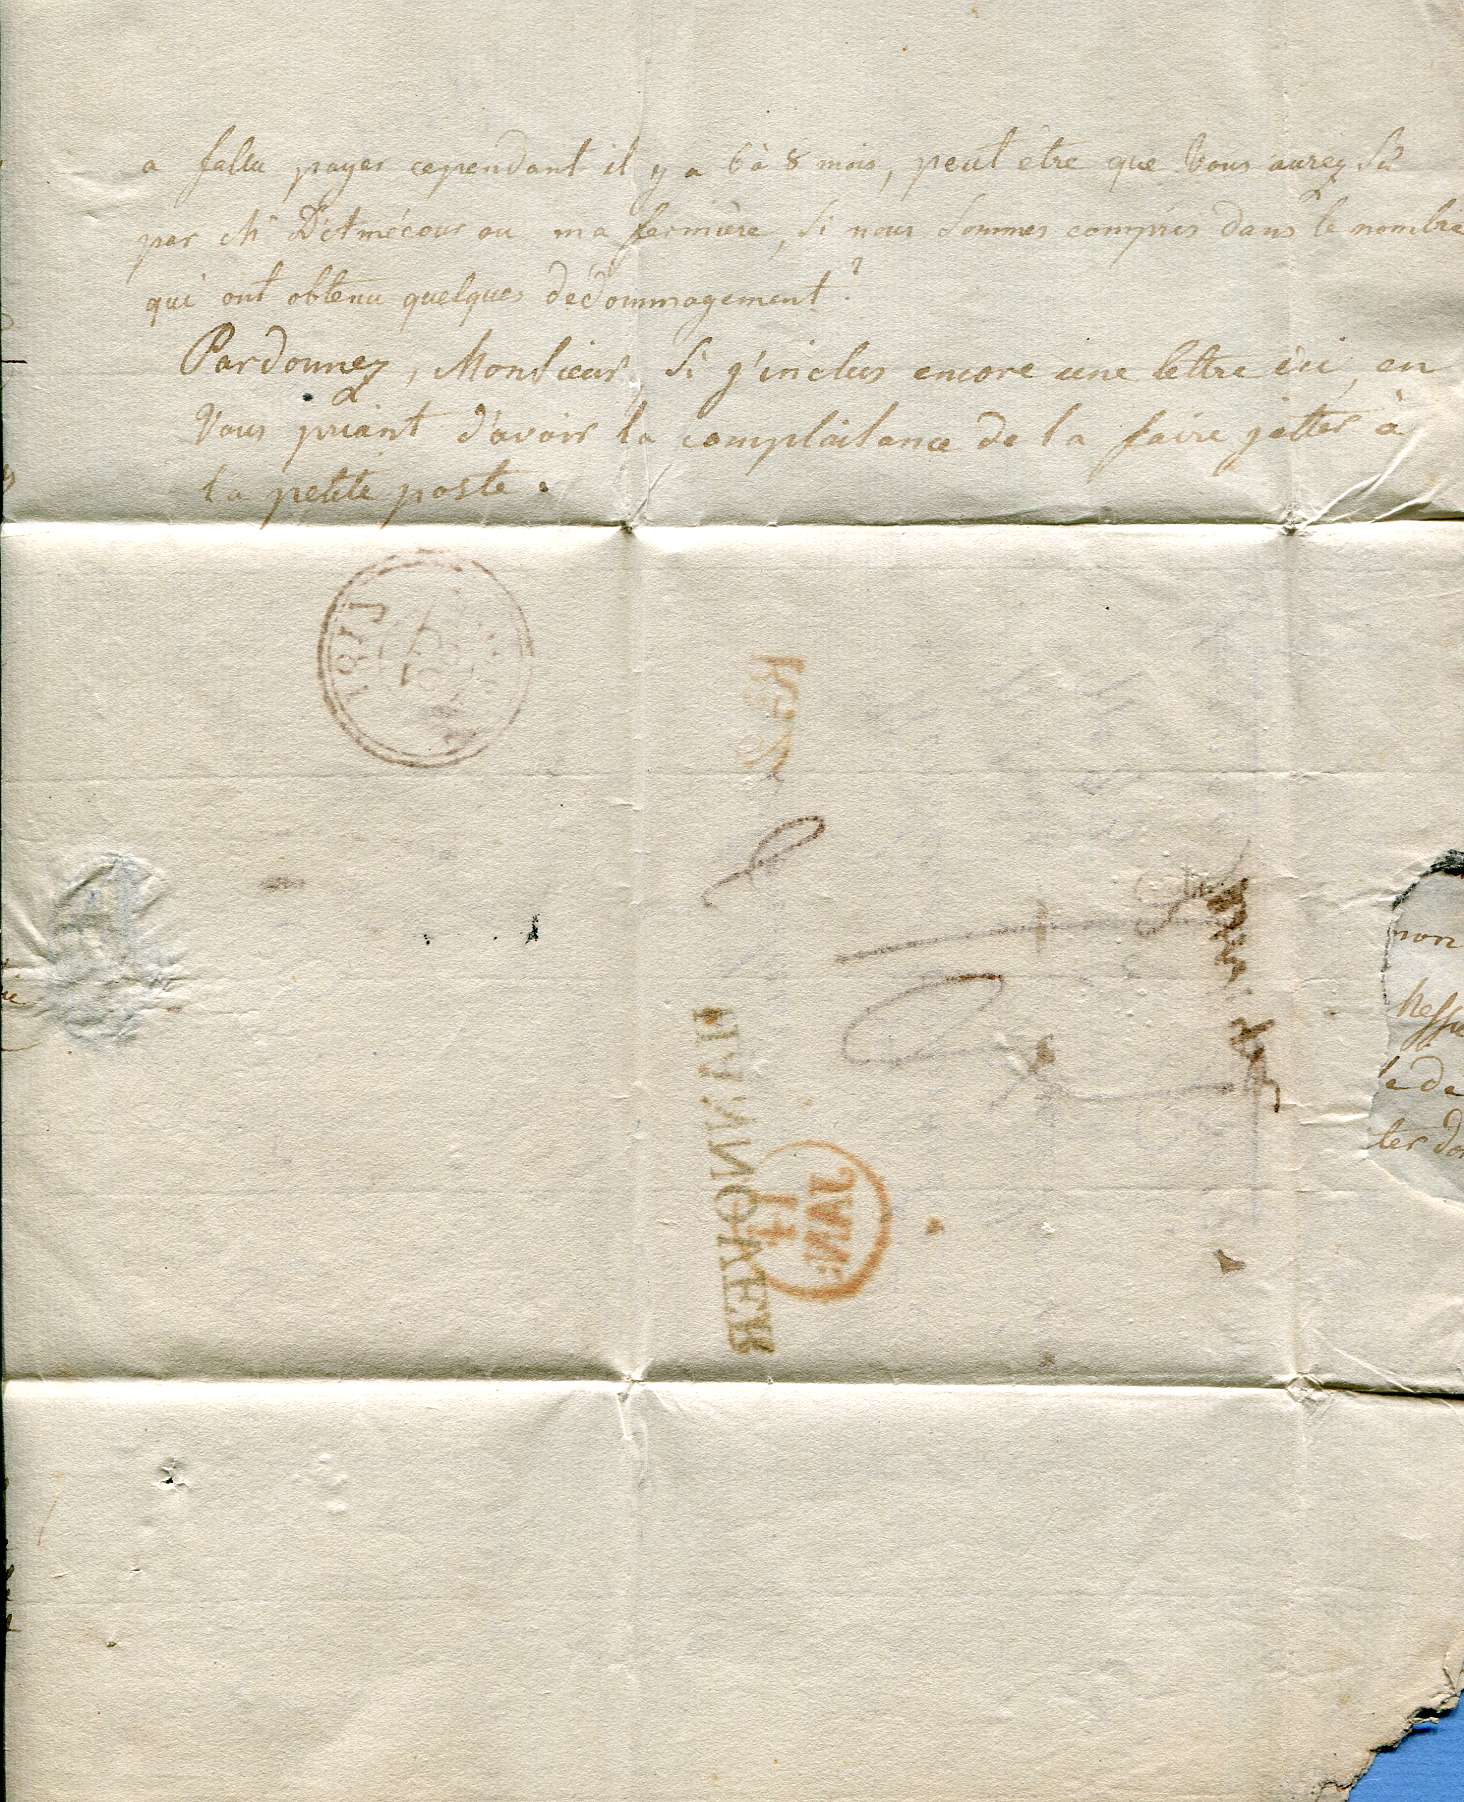 a fallu payer cependant il y a 6 à 8 mois, peut être que Vous aurez Sû
par Mr ou ma fermière, Si nous Sommes compris dans le nombre
qui ont obtenu quelques dédommagement?
Pardonnez, Monsieur, Si j'inclus encore une lettre ici, en
Vous priant d'avoir la complaisance de la faire jetter à
la petite poste.
181
HANOVER
JUNE
14
non